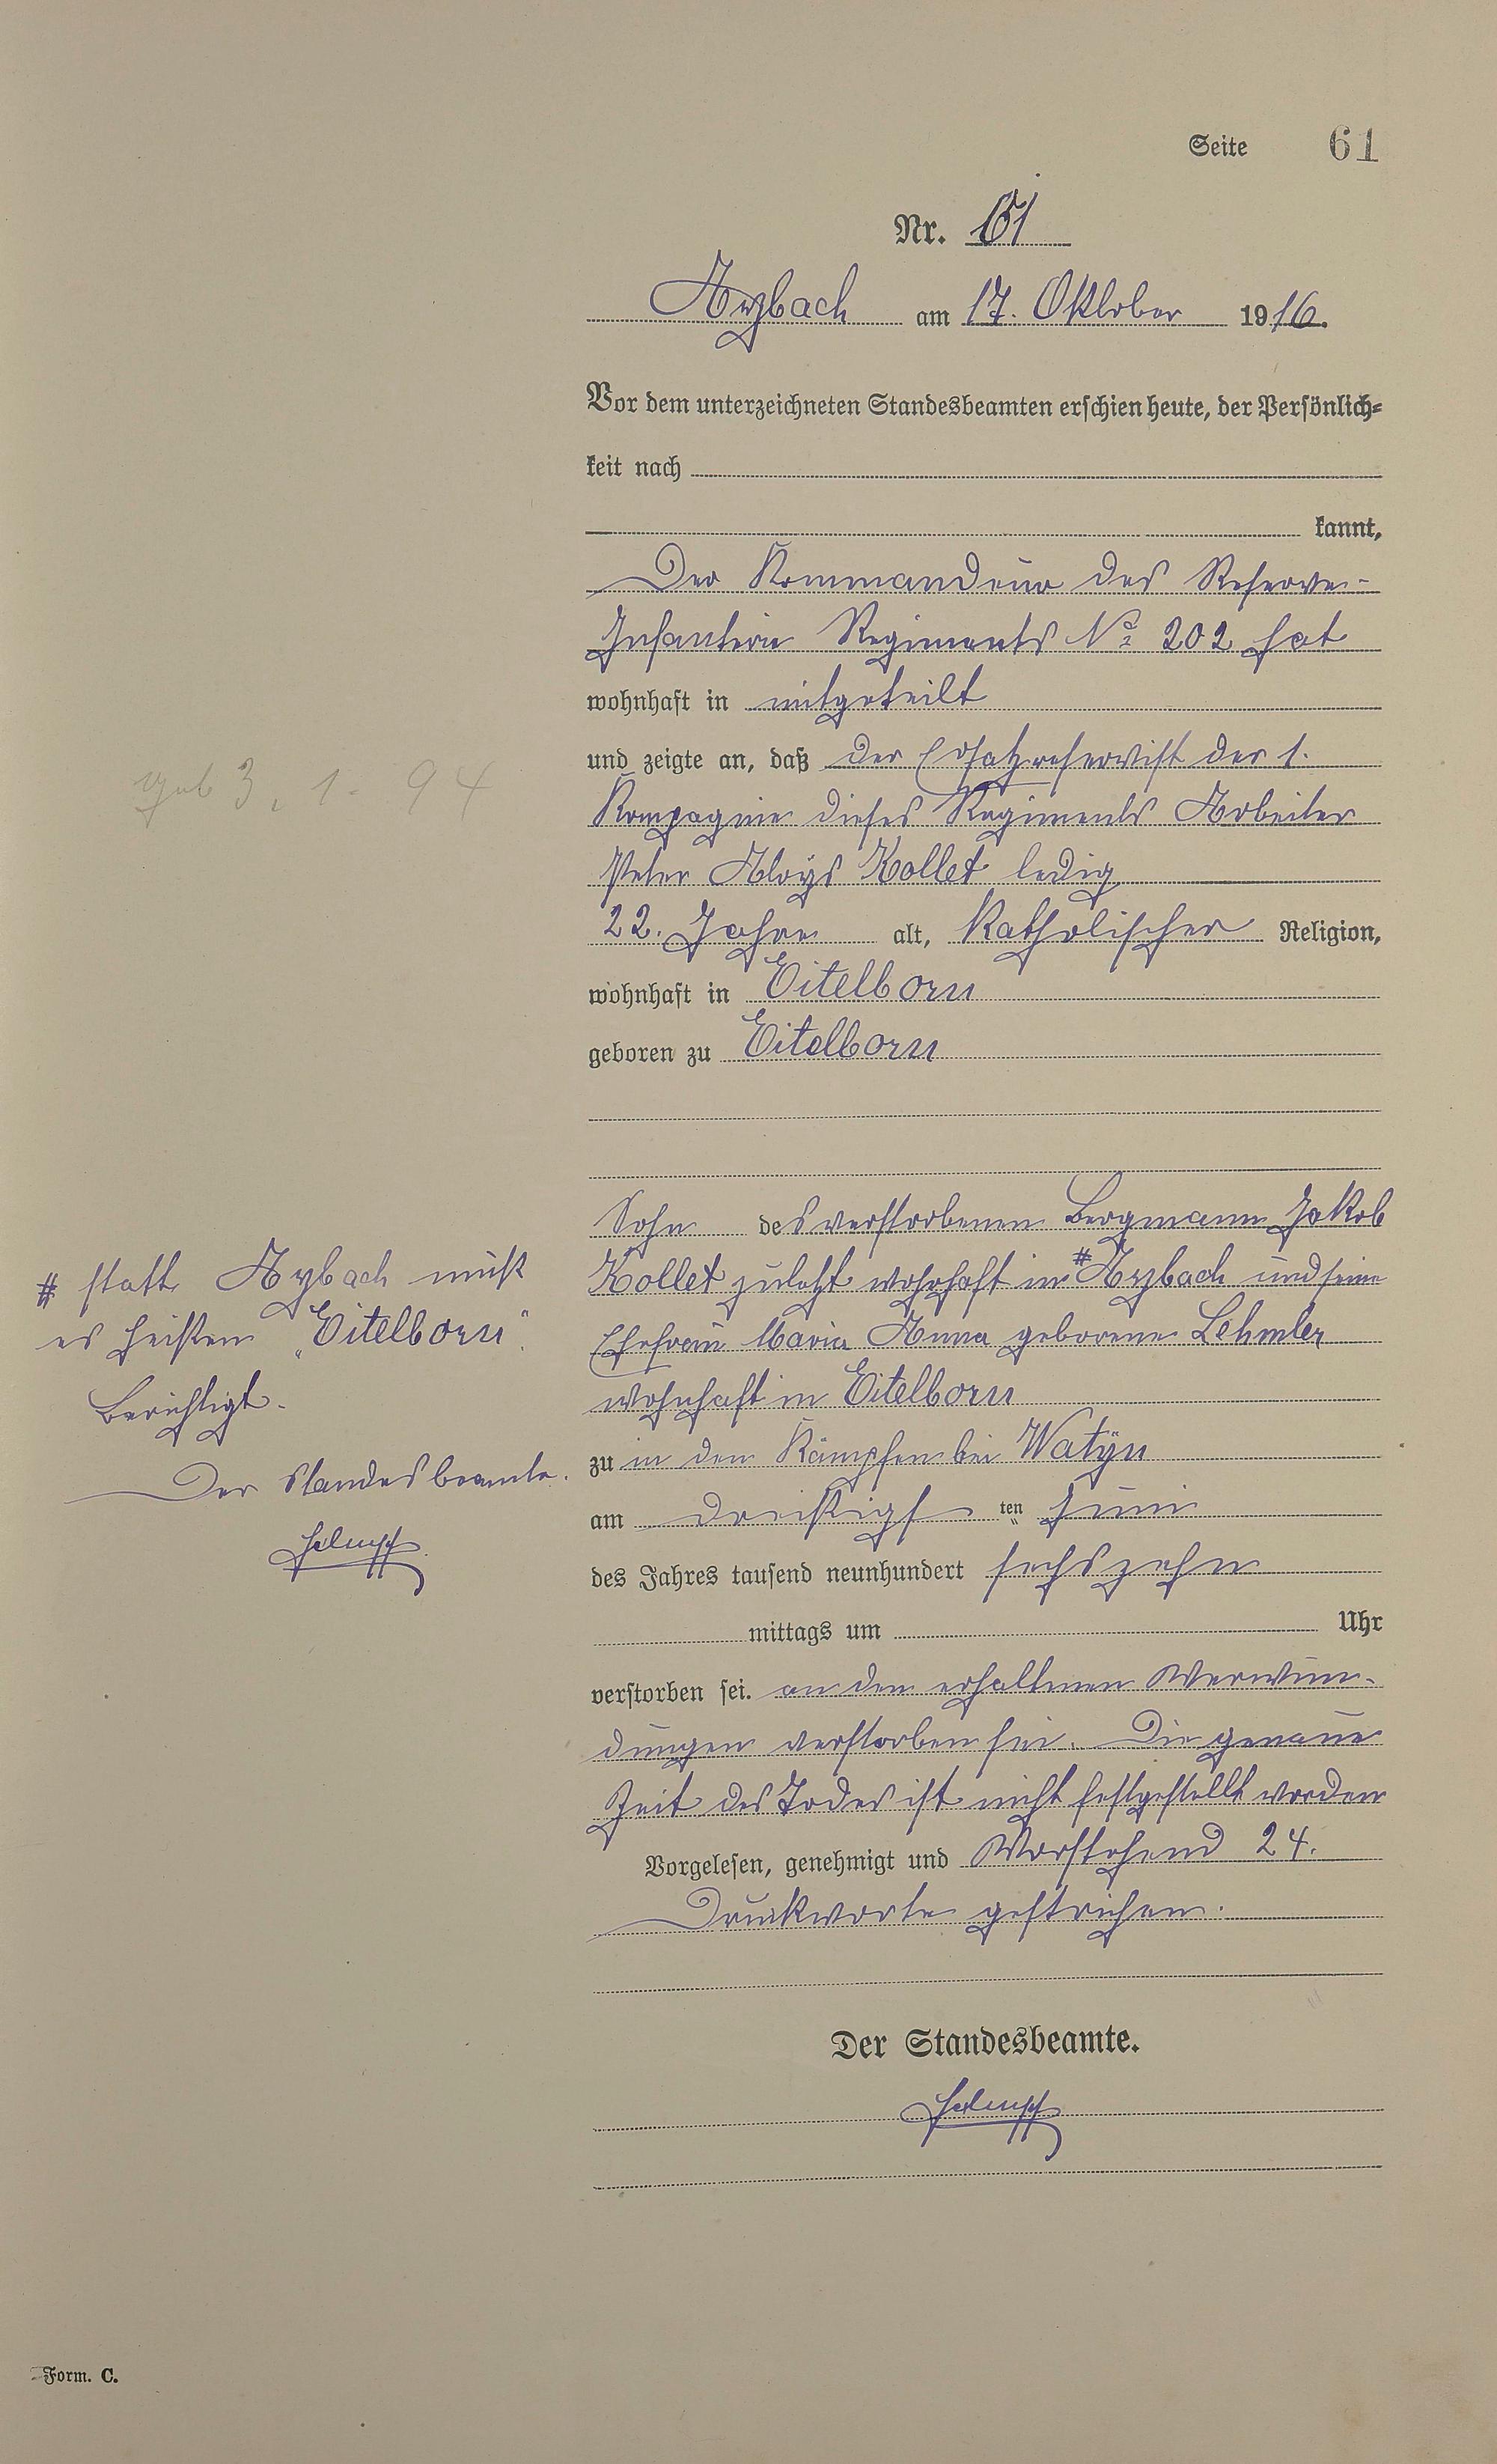 Seite 61
Nr. 61
Arzbach am 17. Oktober 1916.
Vor dem unterzeichneten Standesbeamten erschien heute, der Persönlich-
keit nach
kannt,
Der Kommandeur des Reserve-
Infanterie Regiments No 202 hat
wohnhaft in mitgeteilt
und zeigte an, daß der Ersatzreservist der 1.
Kompagnie dieses Regiments Arbeiter
Peter Aloÿs Kollet ledig
22. Jahre alt, katholischer Religion,
wohnhaft in Eitelborn
geboren zu Eitelborn
Sohn des verstorbenen Bergmann Jakob
Kollet zuletzt wohnhaft in # Arzbach und seine
Ehefrau Maria Anna geborene Lehmler
wohnhaft in Eitelborn
zu in den Kämpfen bei Watÿn
am dreißigsten Juni
des Jahres tausend neunhundert sechszehn
mittags um Uhr
verstorben sei. an den erhaltenen Verwun-
dungen verstorben sei. Die genaue
Zeit des Todes ist nicht festgestellt worden
Vorgelesen, genehmigt und Vorstehend 24.
Druckworte gestrichen.
Der Standesbeamte.
geb 3. 1. 94
# statt Arzbach muß
es heißen "Eitelborn".
Berichtigt.
Der Standesbeamte.
Form. C.